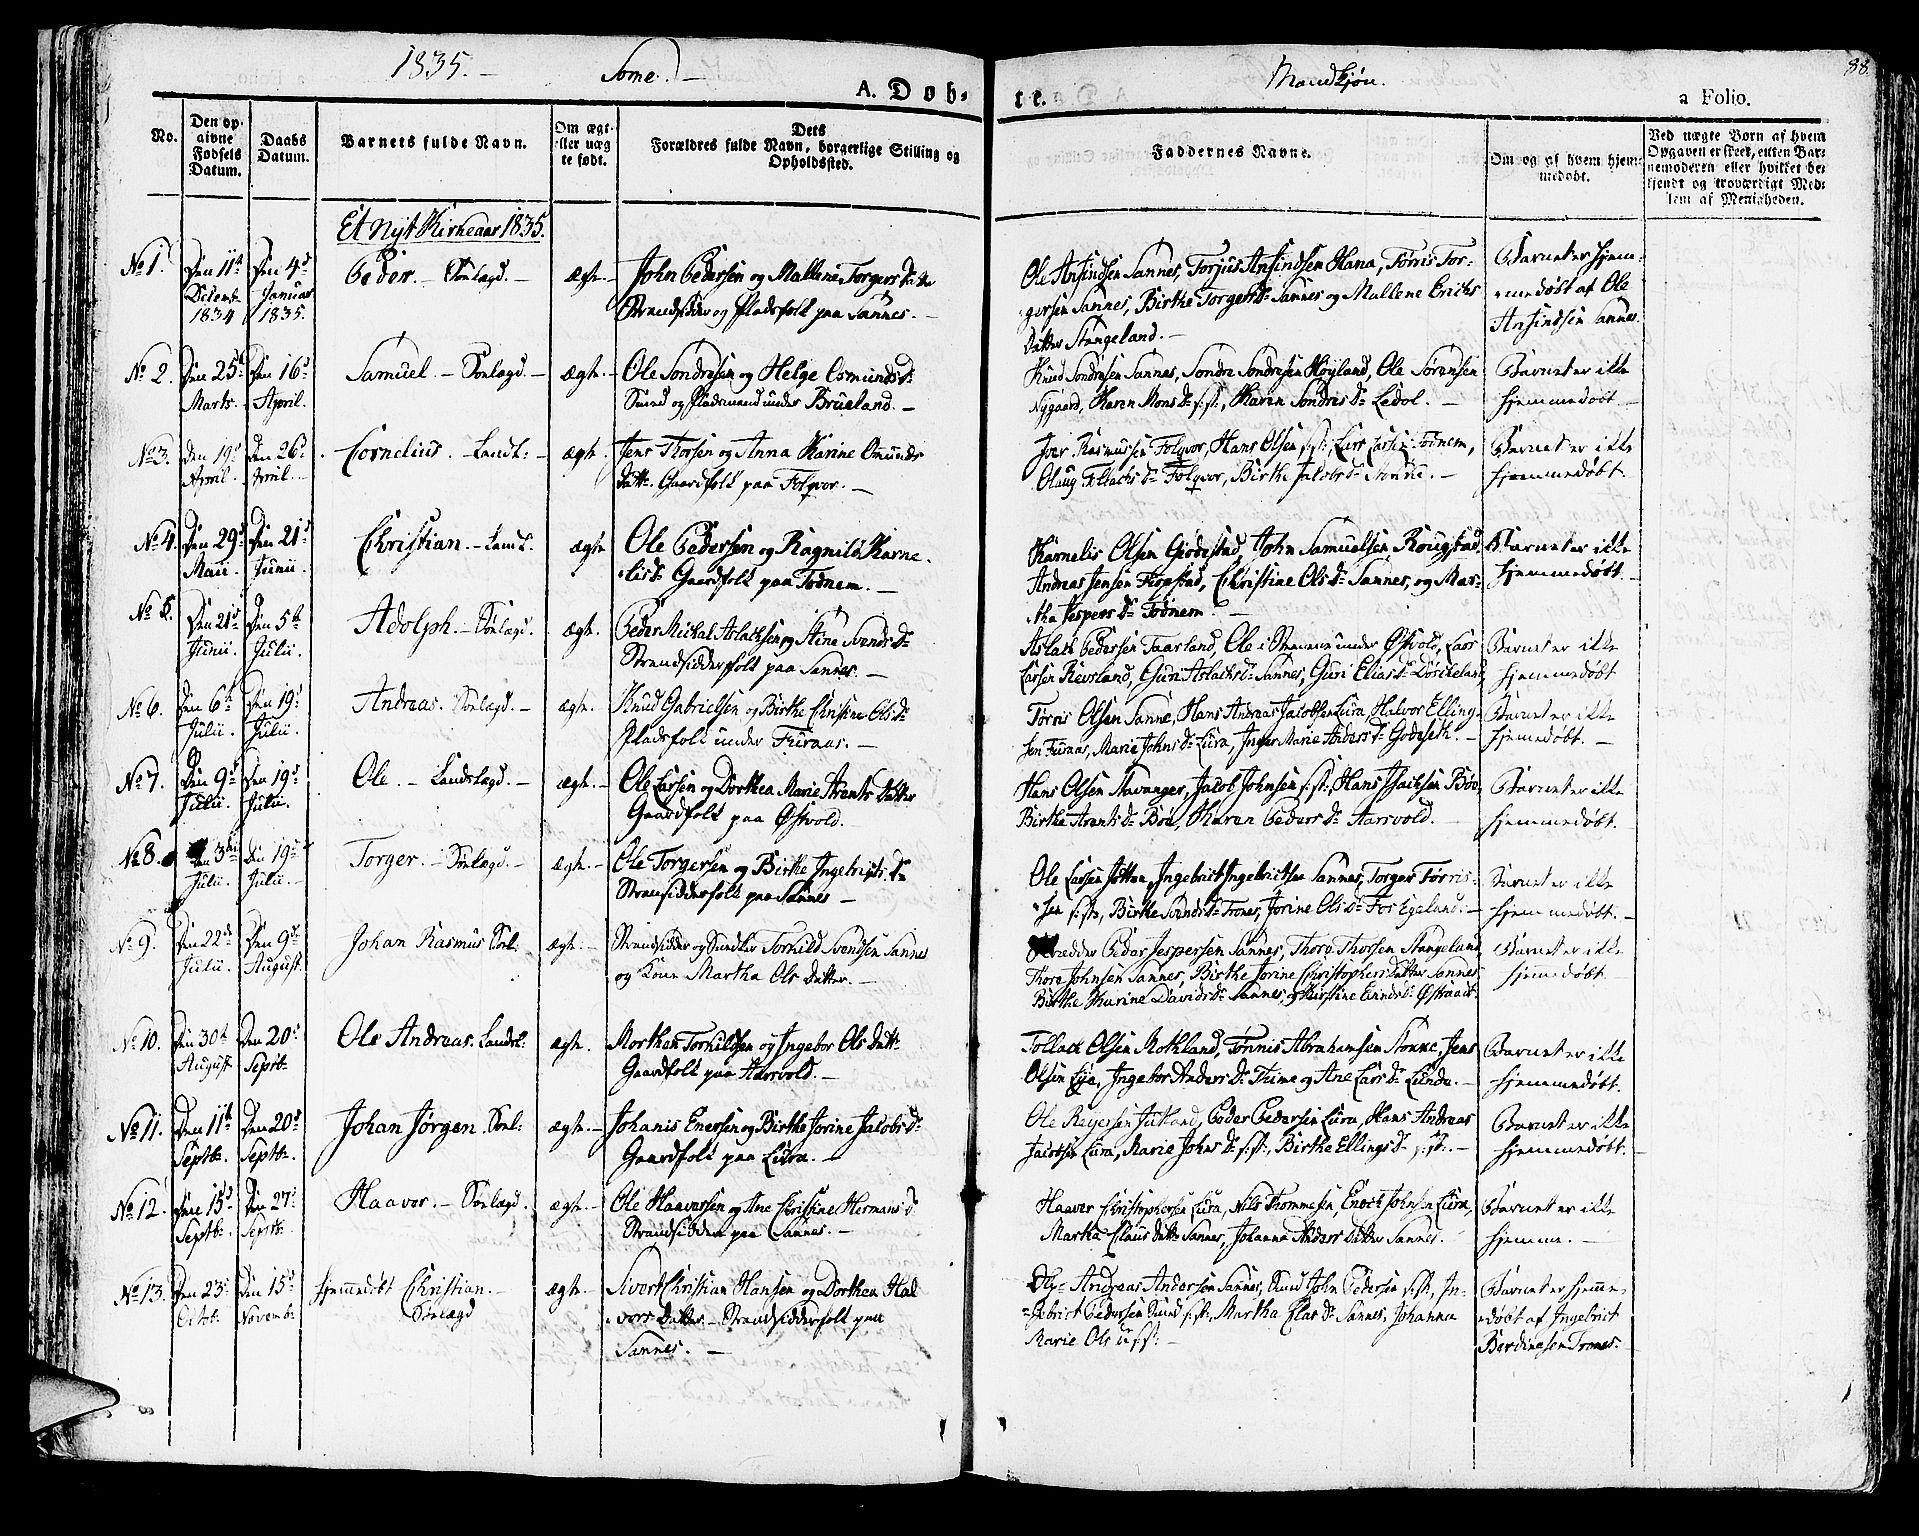 1835. - Some. -
A. Døb-
Mandkjøn.
te.
a Folio.
88.
No.
Den op-
givne
Fødsels
Datum.
Daabs
Datum.
Barnets fulde Navn.
Om ægt-
eller uæg
te født.
Dets
Forældres fulde Navn, borgerlige Stilling og
Opholdssted.
Faddernes Navne.
Om og af hvem hjem-
medøbt.
Ved uægte Børn af hvem
Opgaven er skeet, enten Bar-
nemoderen eller hvilket be-
kjendt og troværdigt Med-
lem af Menigheden.
Et Nyt Kirkeaar 1835.
No 1.
Den 11te
Decemb
1834
Den 4d
Januar
1835.
Peder. - Sønlagd. -
ægte.
John Pedersen og Mallene Torgers Datter
Strandsidder og Pladsfolk paa Sannes. -
Ole Ansindsen Sannes, Torjus Ansindsen Hana, Tørris Tor-
gersen Sannes, Birthe Torgers Dr Sannes og Mallene Erichs
Datter Stangeland. -
Barnet er hjem-
medøbt af Ole
Ansindsen Sannes.
No 2.
Den 25d
Marts.
Den 16d
April.
Samuel - Sønlagd. -
ægte.
Ole Sondresen og Helge Osmundsd
Smed og Pladsmand under Brueland. -
Knud Sondresen Sannes, Sondre Sondresen Høyland, Ole Sørensen
Nygaard, Karen Mons Dr s: st:, Karen Sondris Dr Ledol. -
Barnet er ikke
hjemmedøbt -
No 3.
Den 19d
April.
Den 26d
April.
Cornelius. - Landt: -
ægte.
Jens Thorsen og Anna Karine Omunds
Datt. Gaardfolk paa Folqvor. -
Iver Rasmussen Folqvor, Hans Olsen s: st:, Lars Todnem,
Olaug Tollachs Dr Folqvor, Birthe Jacobs Dr Stonne. -
Barnet er ikke
hjemmedøbt.
No 4.
Den 29d
Maii.
Den 21d
Junii.
Christian. - Landt.
ægte
Ole Pedersen og Ragnild Karne-
lisd Gaardfolk paa Todnem. -
Karnelis Olsen Gjodestad, John Samuelsen Rougstad,
Andreas Jensen, Christine Ols Dr Sannes, og Mar-
tha Jespers Dr Todnem. -
Barnet er ikke
hjemmedøbt.
No 5.
Den 21d
Junii.
Den 5te
Julii.
Adolph. - Sønlagd.
ægte.
Peder Mickal Aslachsen og Stine Svends Dr
Strandsidderfolk paa Sannes. -
Aslach Pedersen Taarland, Ole i under Østvold, Lars
Larsen Revsland, Guri Aslachs Dr Sannes, Guri Elias Dr
Barnet er ikke
hjemmedøbt
No 6.
Den 6te
Julii.
Den 19d
Julii.
Andreas. Sønlagd. -
ægte.
Knud Gabrielsen og Birthe Christine Ols Dr
Pladsfolk under Furaas. -
Tørris Olsen Sanne, Hans Andreas Jacobsen Lura, Halvor Elling-
sen Furaas, Marie Johns Dr Lura, Inger Marie Anders Dr Godeseth. -
Barnet er ikke
hjemedøbt. -
No 7.
Den 9d
Julii.
Den 19d
Julii.
Ole - Landslagd. -
ægte. -
Ole Larsen og Dorthea Marie Arents Datter
Gaardfolk paa Østvold.
Hans Olsen Stavanger, Jacob Johnsen s: st:, Hans Isachsen Bøe,
Birthe Arents Dr Bøe, Karen Peders Dr Aarsvold.
Barnet er ikke
hjemmedøbt.
No 8.
Den 3die
Julii.
Den 19d
Julii.
Torger. - Sønlagd. -
ægte. -
Ole Torgersen og Birthe Ingebrigts Dr
Strandsidderfolk paa Sannes -
Ole Larsen, Ingebrict Ingebrictsen Sannes, Torger Tørris-
sen s: st:, Birthe Svends Dr Trones, Jorine Ols Dr Fos Egeland. -
Barnet er ikke
hjemmedøbt. -
No 9.
Den 22de
Julii.
Den 9d
August.
Johan Rasmus Sønl:
ægte. -
Strandsidder og Snedker Torkild Svendsen Sannes
og Kone Martha Ols Datter. -
Peder Jespersen Sannes, Thore Thorsen Stangeland
Thore Johnsen Sannes, Birthe Jorine Christophers Datter Sannes
Birthe Karine Davids Dr Sannes og Kirstine Østraadt.
Barnet er ikke
hjemmedøbt -
No 10.
Den 30te
August
Den 20d
Septb.
Ole Andreas. Landsl:
ægte.
Morthen Torkildsen og Ingebor Ols Datt
Gaardfolk paa Aarsvold. -
Tollack Olsen Motland, Tønnis Abrahamsen Stonne, Jens
Olsen Lye, Ingebor Anders Dr Thime og Ane Lars Dr Lunde. -
Barnet er ikke
hjemmedøbt.
No 11.
Den 11te
Septb.
Den 20d
Septb.
Johan Jørgen. Sønl:
ægte. -
Johanis Enersen og Birthe Jorine Jacobs Dr
Gaardfolk paa Lura. -
Ole Reyersen, Peder Pedersen Lura, Hans Andreas
Jacobsen Lura, Marie Johns Dr s: st:, Birthe Ellings Dr s: st: -
Barnet er ikke
hjemmedøbt.
No 12.
Den 15d
Septb.
Den 27d
Septb.
Haaver. - Sønlagd.
ægte. -
Ole Haaversen og Ane Christine Hermans d
Strandsidder paa Sannes. -
Haaver Christophersen Lura, Nils Thommesen, Enoch Johnsen Lura,
Martha Claus datter Sannes, Johanna Anders Datter Sannes.
Barnet er ikke
hjemme. -
No 13.
Den 23d
Octb.
Den 15d
Novemb.
Hjemmedøbt Christian. -
Sønlagd
ægte. -
Sivert Christian Hansen og Dorthea Hal
vors Datter - Strandsidderfolk paa
Sannes. -
Andreas Andersen Sannes, Smed John Pedersen s: st:, In-
gebrict Pedersen Smed s: st:, Martha Clas Dr Sannes, Johanna
Marie Ols s: st: -
Barnet er hjemme-
døbt af Ingebrict
Berdinesen Trones. -